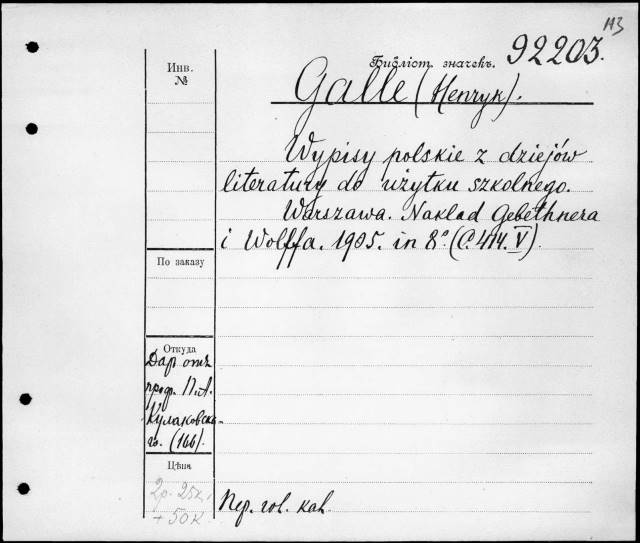 ИЗ
Библіот. значекъ. 92203.
Инв.
№
Galle (Henryk).
Wypisy polskie z dziejów
literatury do użytku szkolnego.
Warszawa. Nakład Gebethnera
i Wolffa. 1905. in 8º. (C. 414. V).
По заказу
Откуда
Даръ отъ
проф. П. А.
Кулаковска-
го. (166).
Цѣна
2р. 25к.
+ 50к
Пер. гол. кал.